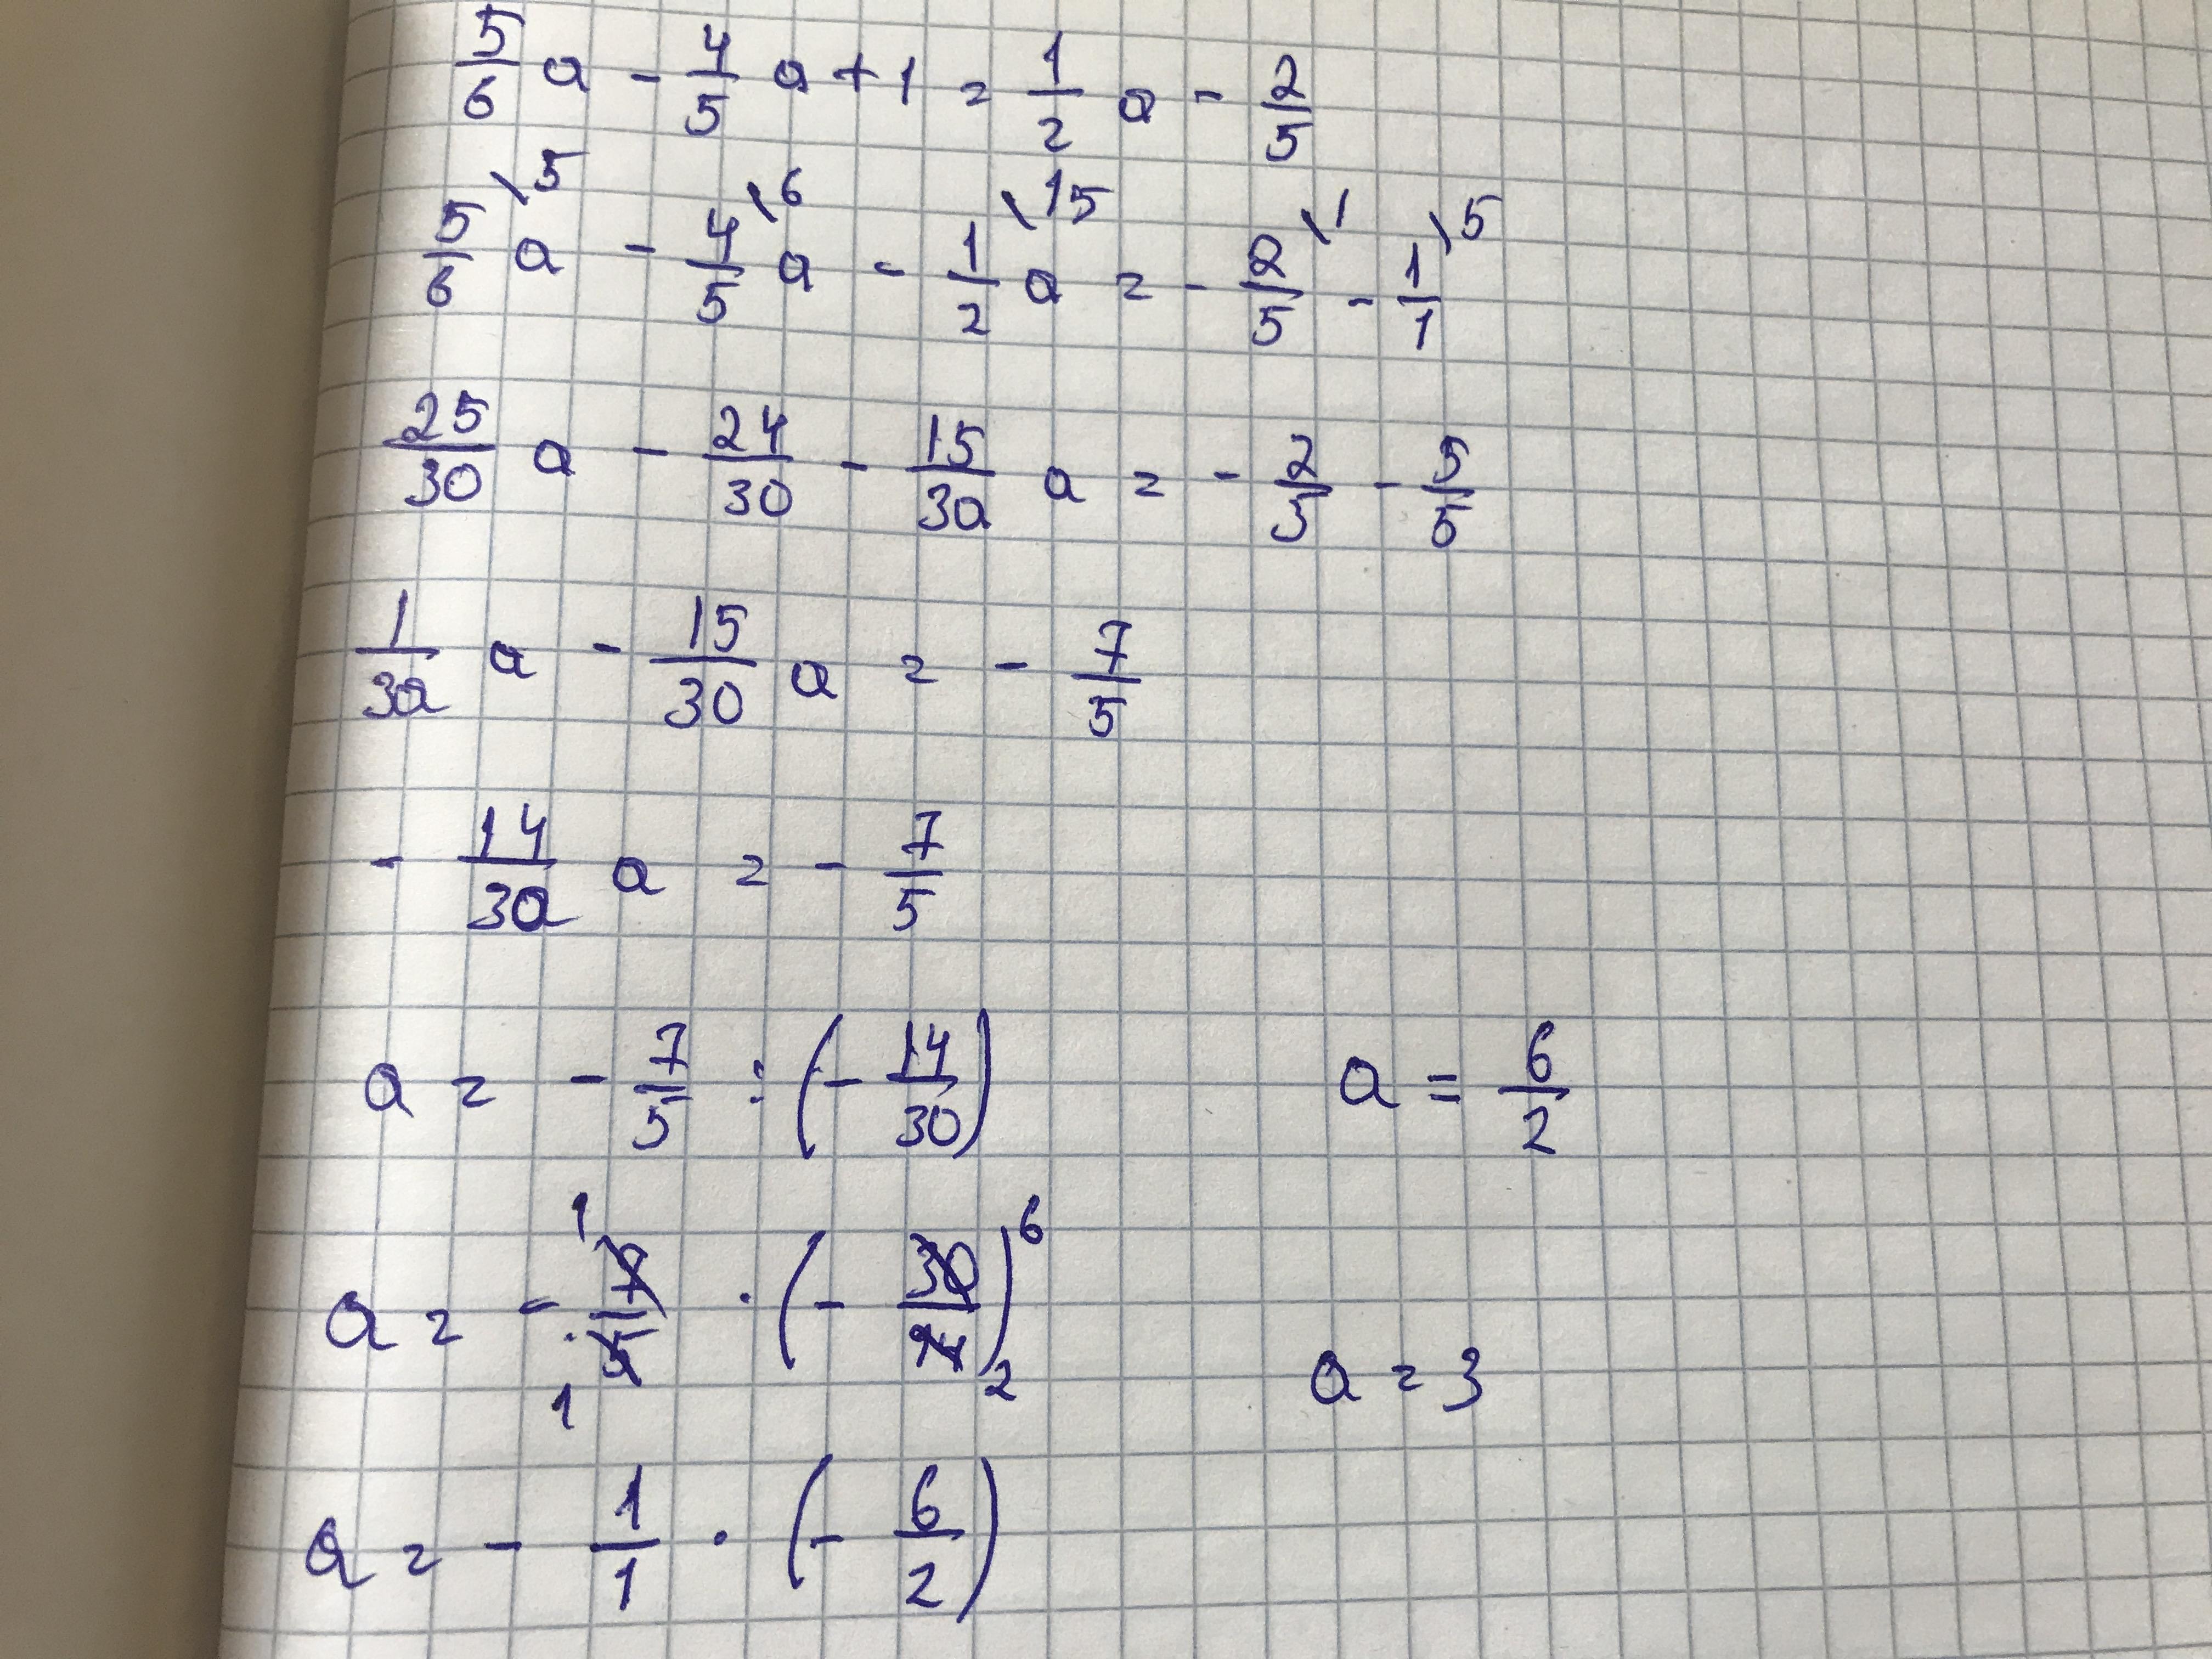 5/6 a - 4/5 a + 1 = 1/2 a - 2/5
5/6 \5 a - 4/5 \6 a - 1/2 \15 a = - 2/5 \1 - 1/1 \5
25/30 a - 24/30 - 15/30 a = - 2/5 - 5/5
1/30 a - 15/30 a = - 7/5
- 14/30 a = - 7/5
a = - 7/5 : (- 14/30)
a = - 7/5 · (- 30/14) 1 1 6 2
a = - 1/1 · (- 6/2)
a = 6/2
a = 3